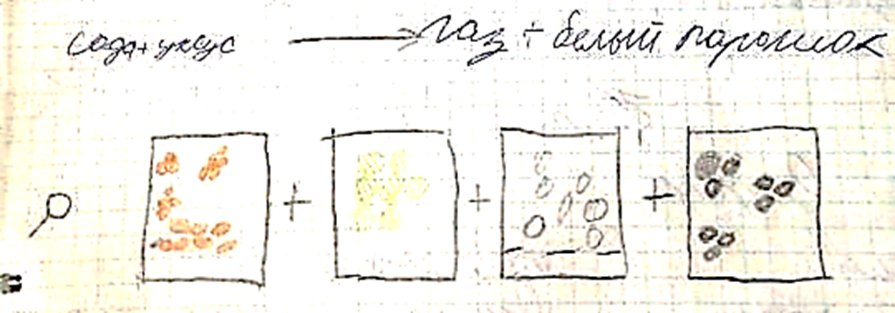 сода+уксус → газ + белый порошок
+ + +